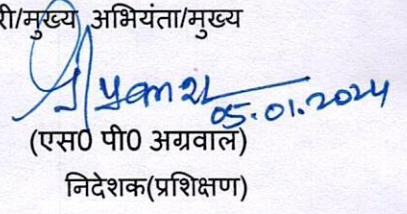 री/मुख्य अभियंता/मुख्य
05.01.2024
(एस0 पी0 अग्रवाल)
निदेशक(प्रशिक्षण)